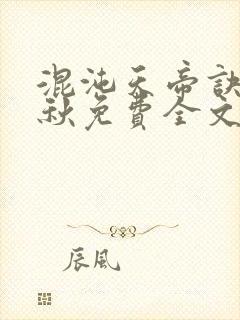 混沌天帝訣
秋免費全文
辰風